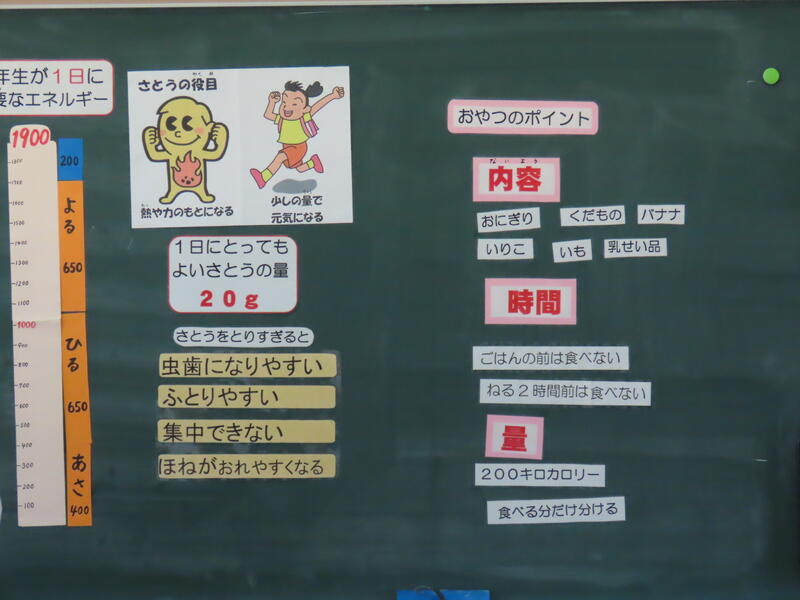 年生が１日に
要なエネルギー
1900
1800
1700
1600
1500
1400
1300
1200
1100
1000
900
800
700
600
500
400
300
200
100
200
よる
650
ひる
650
あさ
400
さとうの役目
やくめ
熱や力のもとになる
ねつ
少しの量で
りょう
元気になる
１日にとっても
よいさとうの量
２０ｇ
さとうをとりすぎると
虫歯になりやすい
ふとりやすい
集中できない
ほねがおれやすくなる
おやつのポイント
ないよう
内容
おにぎり くだもの バナナ
いりこ いも 乳せい品
時間
ごはんの前は食べない
ねる２時間前は食べない
量
２００キロカロリー
食べる分だけ分ける